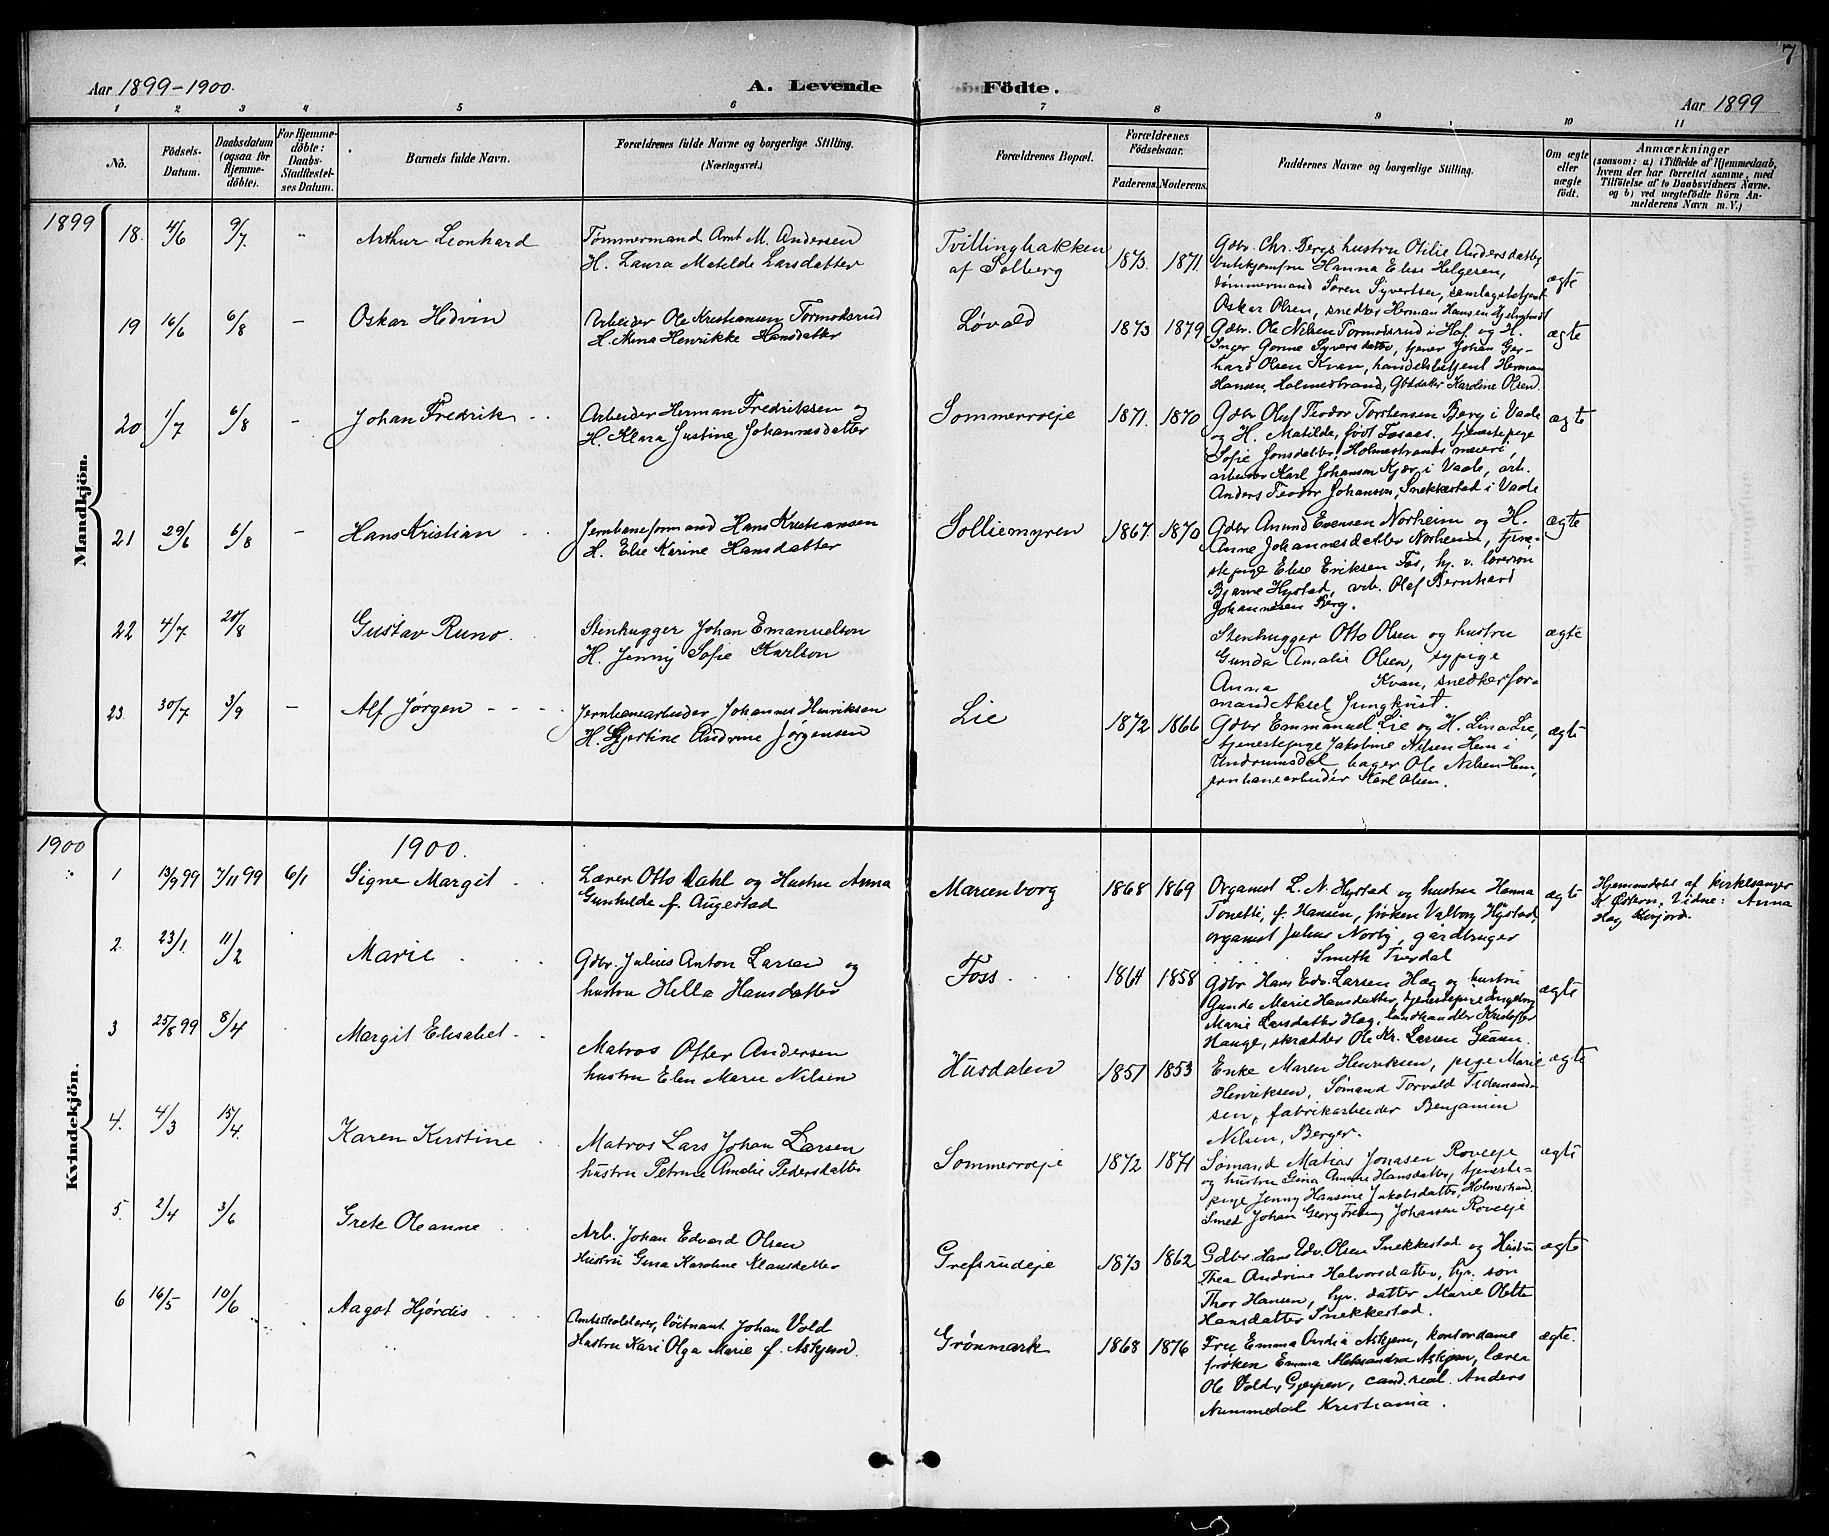 7
Aar 1899-1900.
A. Levende
Födte.
Aar 1899
1 2 3 4 5 6 7 8 9 10 11
No.
Födsels-Datum.
Daabsdatum (ogsaa for Hjemmedöbte).
For Hjemmedöbte: Daabs-Stadfæstelses Datum.
Barnets fulde Navn.
Forældrenes fulde Navne og borgerlige Stilling.
(Næringsvei.)
Forældrenes Bopæl.
Forældrenes Födselsaar.
Faderens. Moderens.
Faddernes Navne og borgerlige Stilling.
Om ægte eller uægte födt.
Anmærkninger
(saasom: a) i Tilfælde af Hjemmedaab, hvem der har forrettet samme, med Tilföielse af to Daabsvidners Navne. og b) ved uægtefödte Börn Anmelderens Navn m. V.)
Mandkjön.
1899
18. 4/6 9/7 "
Arthur Leonhard
Tømmermand Arnt M. Andersen
H. Laura Matilde Larsdatter
Tvillingbakken
af Solberg
1873. 1871.
Gdbr. Chr. Bergs hustru Otilie Andersdatter,
butikjomfru Hanna Elise Helgesen,
tømmermand Søren Syvertsen, samlagsbetjent
Oskar Olsen, snedker Herman Hansen
ægte
19 16/6 6/8 –
Oskar Hedvin
Arbeider Ole Kristiansen Tormodsrud
H. Mina Henrikke Hansdatter
Løvald
1873 1879
Gdbr. Ole Nilsen Tormodsrud i Hof og H.
Inger Gorine Syversdatter, tjener Johan Ger-
hard Olsen Kvan, handelsbetjent Herman
Hansen, Holmestrand, Gbrdatter Karoline Olsen.
ægte
20 1/7 6/8 –
Johan Fredrik
Arbeider Herman Fredriksen og
H. Klara Justine Johannesdatter
Sommerroeje
1871. 1870
Gdbr Oluf Teodor Torstensen Berg i Vaale
og H. Matilda, født Fosaas, tjenestepige
Sofie Jonsdatter, Holmestrands meieri
arbeider Karl Johansen Kjær i Vaale, arb.
Anders Teodor Johansen, Snekkestad i Vaale
ægte
21 29/6 6/8 –
Hans Kristian
Jernbaneformand Hans Kristiansen
H. Else Karine Hansdatter
Solliemyren
1867. 1870
Gdbr Amund Evensen Norheim og H.
Anne Johannesdatter Norheim, tjene-
stepige Elise Eriksen Fos, hj. v. lærersøn
Bjarne Hystad, arb. Olaf Bernhard
Johannesen Berg.
ægte
22 4/7 20/8
Gustav Runo.
Stenhugger Johan Emanuelson
H. Jenny Sofie Karlson
Stenhugger Otto Olsen og hustru
Gunda Amalie Olsen, sypige
Anna Kvan, snedkerfor-
mand Aksel Ljungkvist.
ægte
23. 30/7 3/9 –
Alf Jørgen
Jernbanearbeider Johannes Henriksen
H. Hjertine Andrine Jørgensen
Lie
1872 1866
Gdbr Emmanuel Lie og H. Lina Lie,
tjenestepige Jakobine Nilsen Hem i
Undrumsdal, bager Ole Nilsen Hem,
jernbanearbeider Karl Olsen.
ægte
Kvindekjön.
1900
1900.
1 13/9 99 7/11 99 6/1
Signe Margit
Lærer Otto Dahl og Hustru Anna
Gunhilde f. Augestad
Marienborg
1868 1869
Organist L. N. Hystad og hustru Hanna
Tonette, f. Hansen, frøken Valborg Hystad,
organist Julius Norby, gårdbruger
Smith Tverdal
ægte
Hjemmedøbt af kirkesanger
K. Østern, Vidne: Anna
2. 23/1 11/2
Marie
Gdbr. Julius Anton Larsen og
hustru Hella Hansdatter
Foss
1864 1858
Gdbr Hans Edv. Larsen Hæg og hustru
Gunda Marie Hansdatter, tjenestepige Ingeborg
Marie Larsdatter Hæg, landhandler Kristoffer
Hauge, skrædder Ole Kr. Larsen Graan.
ægte
3 25/8 99 8/4
Margit Elisabet
Matros Ofter Andersen
hustru Elen Marie Nilsen
Husdalen
1851 1853
Enke Maren Henriksen, pige Marie
Henriksen, Sømand Torvald Tidemand-
sen, fabrikarbeider Benjamin
Nilsen, Berger.
ægte
4. 4/3 15/4.
Karen Kirstine
Matros Lars Johan Larsen
hustru Petrine Amalie Pedersdatter
Sommerroeje
1872 1871
Sømand Matias Jonasen Roveje
og hustru Gina Amalie Hansdatter, tjeneste-
pige Jenny Hansine Jakobsdatter, Holmestrand.
Smed Johan Georg Johansen Roveje
ægte
5. 2/4 3/6
Grete Oleanne
Arb. Johan Edvard Olsen
Hustru Gina Karoline Klausdatter
Grefsrudeje
1873 1862
Gdbr. Hans Edv. Olsen Snekkestad og Hustru
Thea Andrine Halvorsdatter, byr. søn
Thor Hansen, byr. datter Marie Olette
Hansdatter Snekkestad.
ægte
6 16/5 10/6
Aagot Hjørdis
Amtsskolelærer, løitnant Johan Vold
Hustru Kari Olga Marie f. Askjem.
Grønmark
1868 1876
Fru Emma Ovidia Askjem, kontordame
frøken Emma Aleksandra Askjem, lærer
Ole Vold, Gjerpen, cand. real. Anders
Nummedal Kristiania.
ægte.